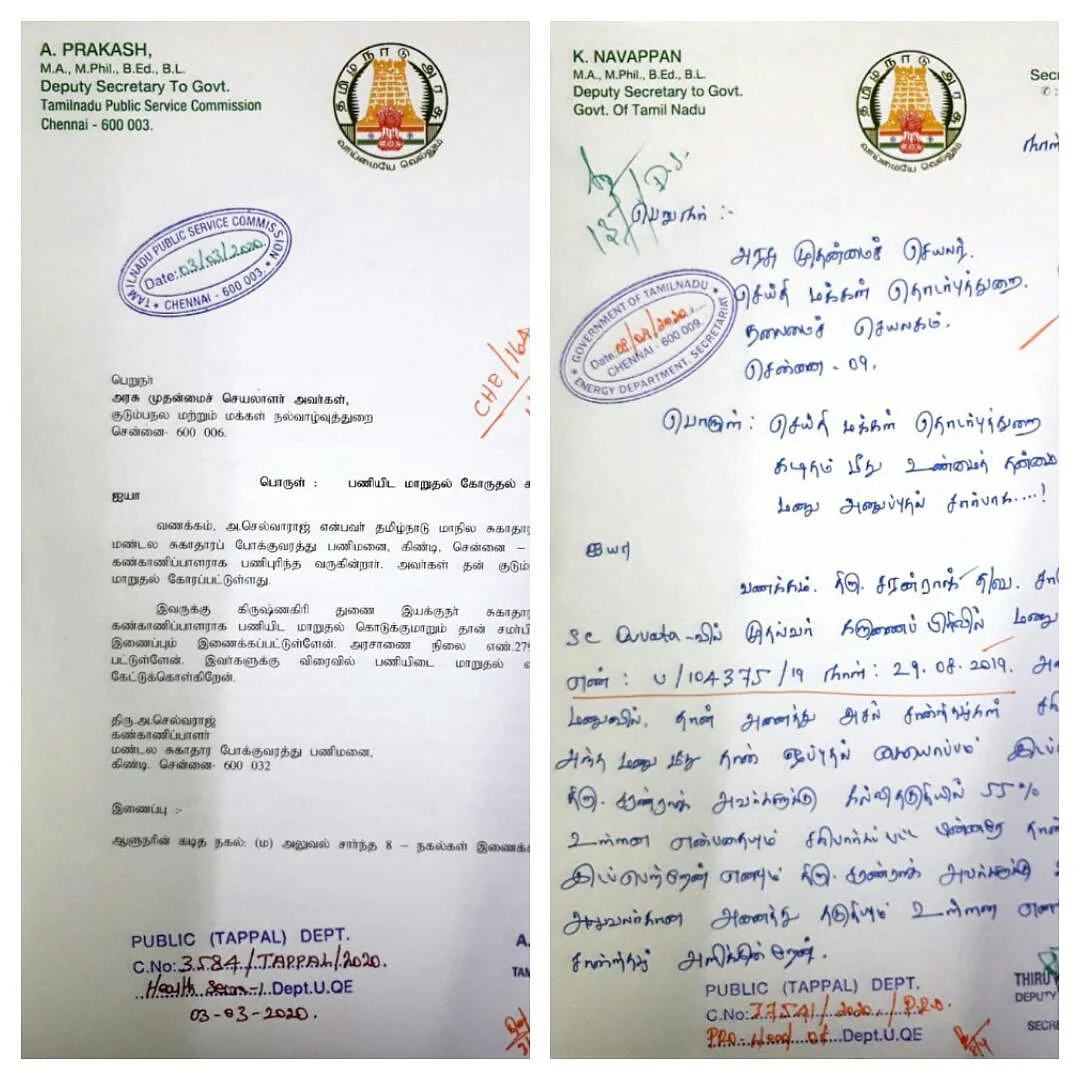 A. PRAKASH,
M.A., M.Phil., B.Ed., B.L.
Deputy Secretary To Govt.
Tamilnadu Public Service Commission
Chennai - 600 003.
தமிழ்நாடு அரசு
வாய்மையே வெல்லும்
TAMILNADU PUBLIC SERVICE COMMISSION
Date: 03/03/2020
CHENNAI - 600 003.
CHE/164
பெறுநர்
அரசு முதன்மைச் செயலாளர் அவர்கள்,
குடும்பநல மற்றும் மக்கள் நல்வாழ்வுத்துறை
சென்னை- 600 006.
பொருள் : பணியிட மாறுதல் கோருதல்
ஐயா
வணக்கம், அ.செல்வராஜ் என்பவர் தமிழ்நாடு மாநில சுகாதார
மண்டல சுகாதாரப் போக்குவரத்து பணிமனை, கிண்டி, சென்னை –
கண்காணிப்பாளராக பணிபுரிந்த வருகின்றார். அவர்கள் தன் குடும்
மாறுதல் கோரப்பட்டுள்ளது.
இவருக்கு கிருஷ்ணகிரி துணை இயக்குநர் சுகாதார
கண்காணிப்பாளராக பணியிட மாறுதல் கொடுக்குமாறும் தான் சமர்பி
இணைப்பும் இணைக்கப்பட்டுள்ளேன். அரசாணை நிலை எண்.279
பட்டுள்ளேன். இவர்களுக்கு விரைவில் பணியிடை மாறுதல்
கேட்டுக்கொள்கிறேன்.
திரு.அ.செல்வராஜ்
கண்காணிப்பாளர்
மண்டல சுகாதார போக்குவரத்து பணிமனை,
கிண்டி. சென்னை- 600 032
இணைப்பு :-
ஆளுநரின் கடித நகல்: (ம) அலுவல் சார்ந்த 8 – நகல்கள் இணைக்
A.
TAM
PUBLIC (TAPPAL) DEPT.
C.No: 3584/TAPPAL/2020.
Health Secre-1 Dept.U.QE
03-03-2020.
K. NAVAPPAN
M.A., M.Phil., B.Ed., B.L.
Deputy Secretary to Govt.
Govt. Of Tamil Nadu
தமிழ்நாடு அரசு
வாய்மையே வெல்லும்
Secr
நாள்
பெறுநர் :-
அரசு முதன்மைச் செயலர்.
செய்தி மக்கள் தொடர்புத்துறை.
தலைமைச் செயலகம்.
சென்னை - 09.
GOVERNMENT OF TAMILNADU
Date: 08/04/2020
CHENNAI - 600 009.
ENERGY DEPARTMENT, SECRETARIAT
பொருள் : செய்தி மக்கள் தொடர்புத்துறை
கடிதம் மீது உண்மைத் தன்மை
மனு அனுப்புதல் சார்பாக....!
ஐயா
வணக்கம். திரு. சரண்ராஜ் த/வ.
SC Quota -வில் முதல்வர் கருணைப் பிரிவில் மனு
எண் : U/104375/19 நாள் : 29.08.2019.
மனுவில், தான் அனைத்து அசல் சான்றிதழ்கள்
அந்த மனு மீது நான் ஒப்புதல் கையொப்பம்
திரு. சரண்ராஜ் அவர்களுக்கு கல்வி தகுதியில் 55%
உள்ளன என்பதையும் சரிபார்க்கப் பட்ட பின்னரே நான்
இடம்பெற்றேன் எனவும் திரு. சரண்ராஜ் அவர்களுக்கு
அலுவலர்கான அனைத்து தகுதியும் உள்ளன என
சான்றிதழ் அளிக்கின்றேன்.
THIRU
DEPUTY
SECRE
PUBLIC (TAPPAL) DEPT.
C.No: 37541/2020/P.R.O
Dept.U.QE